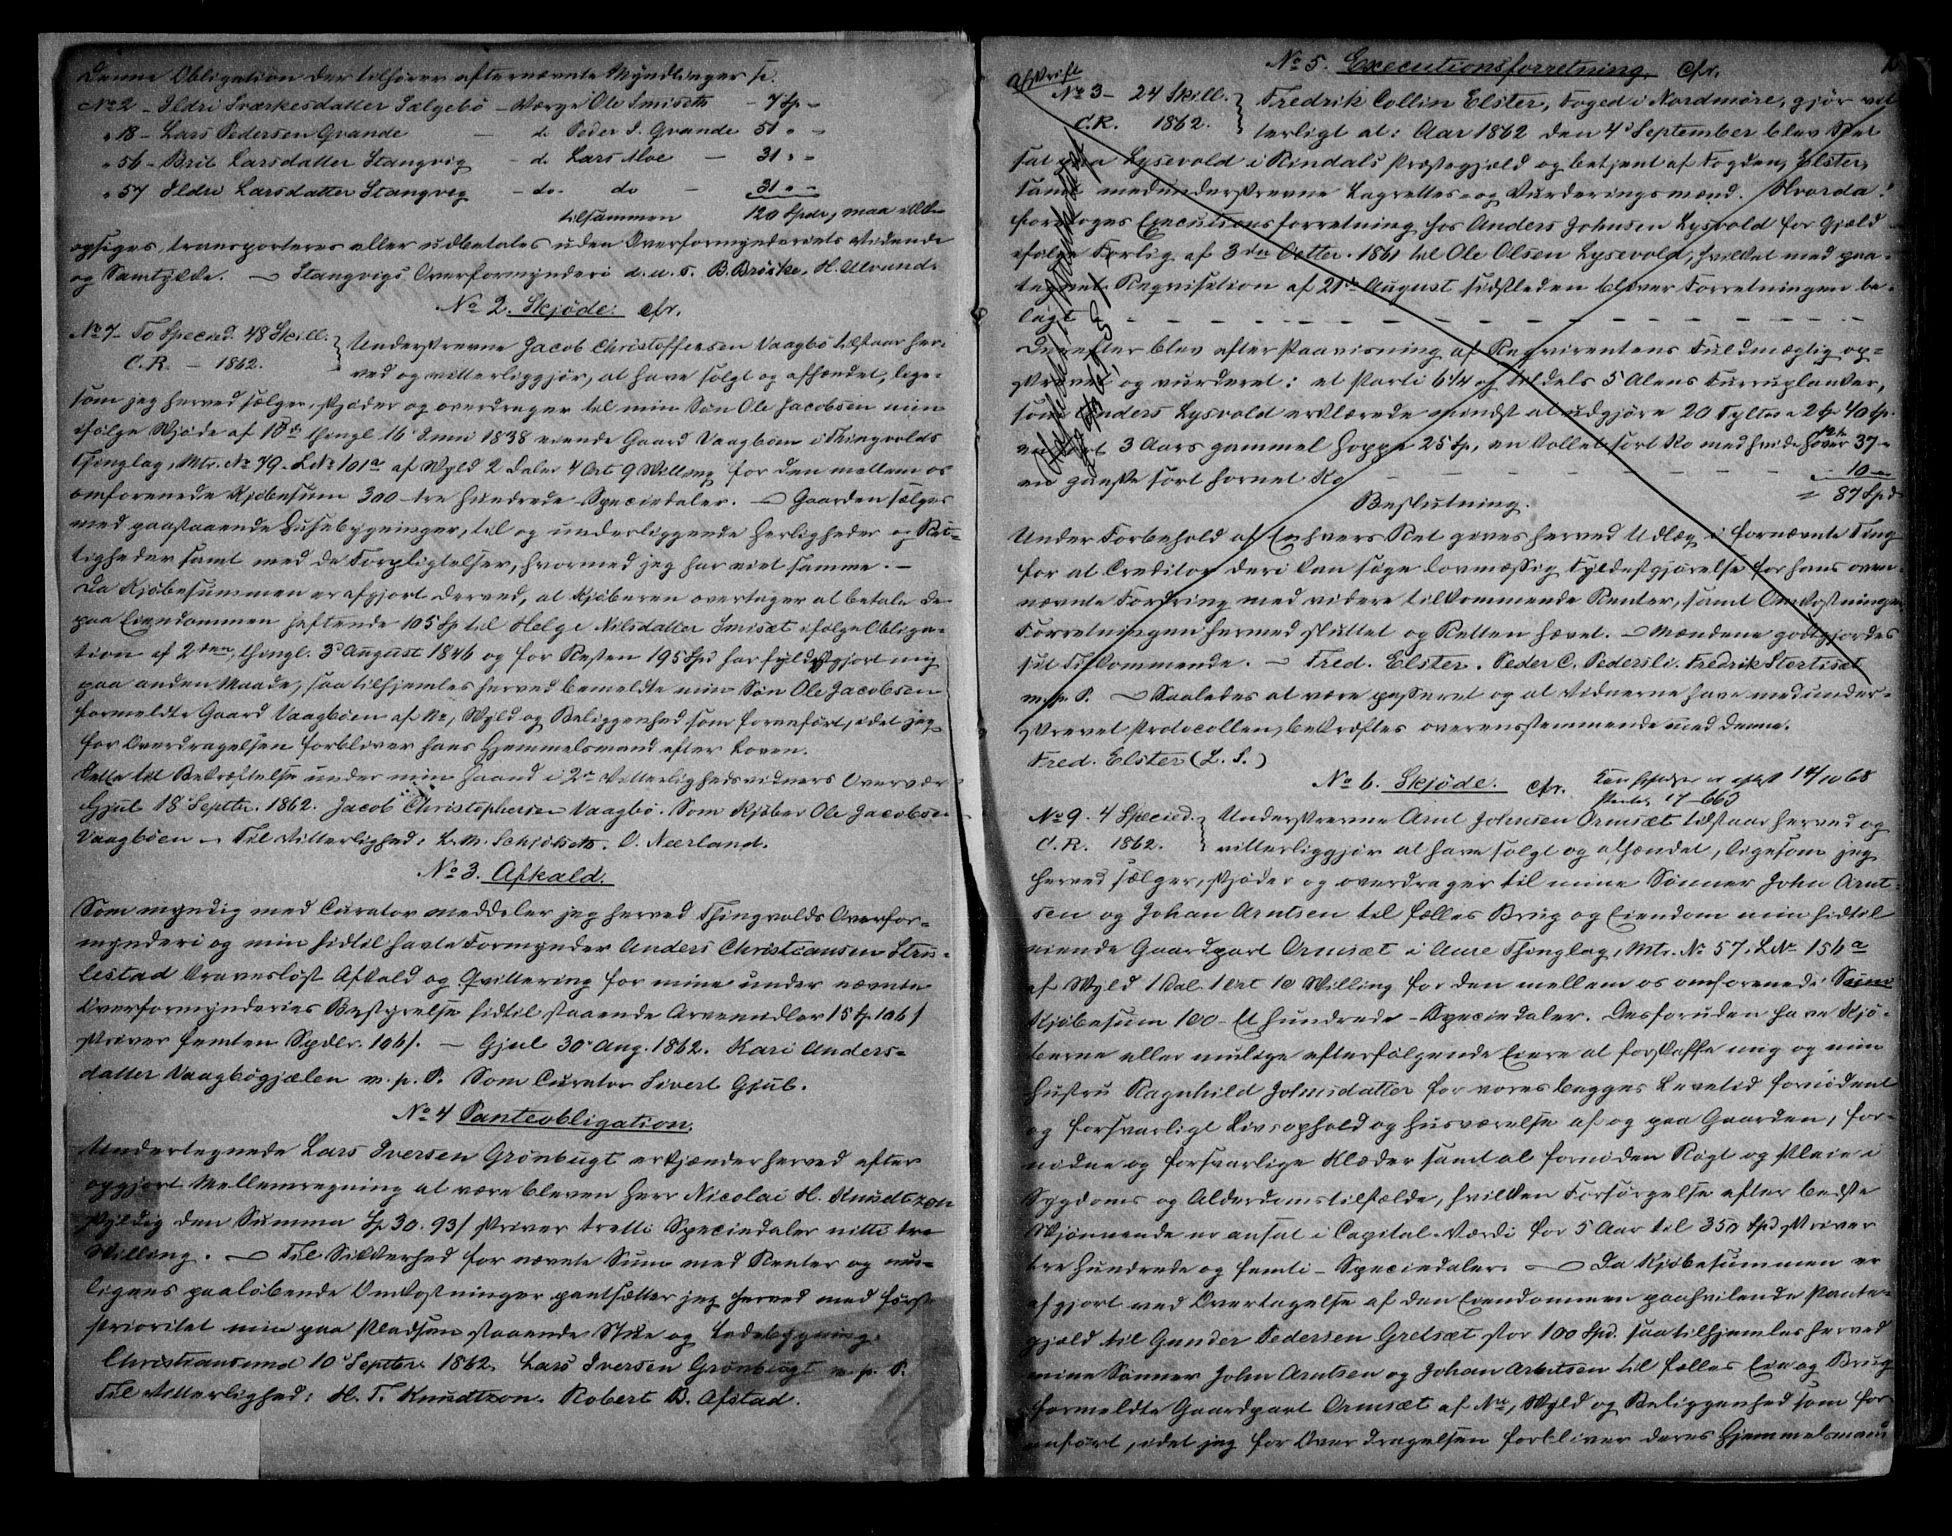 Denne Obligation der tilhører efternævnte Myndlinger sc.
No 2 – Ildri Sværkesdatter Sælgebø – Værge Ole Smiseth – 7 Sp –
" 18 – Lars Pedersen Grande – do Peder I. Grande 51 " –
" 56 – Brit Larsdatter Stangvig – do Lars Moe – 31 " –
" 57 Ildri Larsdatter Stangvig – do – do – 31 " –
tilsammen 120 Spdr, maa ikke
opsiges, transporteres eller udbetales uden Overformynderiets Vidende
og Samtykke. – Stangvigs Overformynderi d. u. s. B. Brøske. H. Ulvund.
No 2. Skjøde. cfr.
No 7 – To Specied. 48 Skill.
C. R. – 1862.
Underskrevne Jacob Christoffersen Vaagbø tilstaar her-
ved og vitterliggjør, at have solgt og afhændet, lige-
som jeg herved sælger, skjøder og overdrager til min Søn Ole Jacobsen min
ifølge Skjøde af 18de thingl. 16 Juni 1838 eiende Gaard Vaagbøen i Thingvolds
Thinglag, Mtr. No 79. L No 101a af Skyld 2 Daler 4 Ort 9 Skilling for den mellem os
omforenede Kjøbesum 300 – tre hundrede – Speciedaler. – Gaarden sælges
med paastaaende Husebygninger, til og underliggende Herligheder og Ret-
tigheder samt med de Forpligtelser, hvormed jeg har eiet samme. –
Da Kjøbesummen er afgjort derved, at Kjøberen overtager at betale de
paa Eiendommen heftende 105 Sp til Helge Nilsdatter Smiset ifølge Obliga-
tion af 2den, thingl. 3 August 1846 og for Resten 195 Spd har fyldestgjort mig
paa anden Maade, saa tilhjemles herved bemeldte min Søn Ole Jacobsen
formeldte Gaard Vaagbøen af No, Skyld og Beliggenhed som foranført, idet jeg
for Overdragelsen forbliver hans Hjemmelsmand efter Loven.
Dette til Bekræftelse under min Haand i 2de Vitterlighedsvidners Overvær
Gjul 18 Septbr. 1862. Jacob Christophersen Vaagbø. Som Kjøber Ole Jacobsen
Vaagbøen – Til Vitterlighed: L. M. Schjølseth. O. Nærland.
No 3. Afkald.
Som myndig med Curator meddeler jeg herved Thingvolds Overfor-
mynderi og min hidtil havte Formynder Anders Christiansen
kravesløst Afkald og Qvittering for mine under nævnte
Overformynderies Bestyrelse hidtil staaende Arvemidler 15 Sp 106 s
skriver femten Spdlr. 106 s. – Gjul 30 Aug. 1862. Kari Anders-
datter Vaagbøgjælen m. p. P. Som Curator Sivert Gjul.
No 4 Panteobligation.
Undertegnede Lars Iversen Grønbugt erkjænder herved efter
opgjort Mellemregning at være bleven Herr Nicolai H. Knudtzon
skyldig den Summa Sp 30. 93 s skriver tretti Speciedaler nitti tre
Skilling. – Til Sikkerhed for nævnte Sum med Renter og mu-
ligens paaløbende Omkostninger pantsætter jeg herved med første
Prioritet min paa Pladsen staaende Stue og Ladebygning.
Christiansund 10 Septbr. 1862. Lars Iversen Grønbugt m. p. P.
Til Vitterlighed: H. T. Knudtzon. Robert B. Afstad.
No 5. Executionsforretning. cfr.
Afskrift
No 3 – 24 Skill.
C. R. 1862.
Fredrik Collin Elster, Foged i Nordmøre, gjør vit-
terligt at: Aar 1862 den 4 September blev Ret
sat paa Lysevold i Rindals Præstegjæld og betjent af Fogden Elster,
samt medunderskrevne Lagrettes- og Vurderingsmænd. Hvorda:
foretoges Executionsforretning hos Anders Johnsen Lysvold for Gjæld
ifølge Forlig af 3die Octbr. 1861 til Ole Olsen Lysevold, hvilket med paa-
tegnet Reqvisition af 21de August sidstleden bliver Forretningen be-
lagt – – – –
Derefter blev efter Paavisning af Reqvirentens Fuldmægtig op-
skrevet og vurderet: et Parti 6 1/4 og tildels 5 Alens Furruplanker,
som Anders Lysvold erklærede mindst at udgjøre 20 Tylter a 2 Sp 40 Sp.
3 Aars gammel Hoppe 25 Sp, en kollet sort Ko med hvide 12 Sp 37 –
en ganske sort hornet Ko – – – 10 –
= 87 Spd
Beslutning.
Under Forbehold af Enhvers Ret gives herved Udlæg i fornævnte Ting
for at Creditor deri kan søge lovmæssig Fyldestgjørelse for hans oven-
nævnte Fordring med videre tilkommende Renter, samt Omkostninger
Forretningen hermed sluttet og Retten hævet. – Mændene godtgjordes
sit Tilkommende. – Fred. Elster. Peder C. Pedersli. Fredrik Stortiset
m. p. P. – Saaledes at være passeret og at Vidnerne have medunder-
skrevet Protocollen, bekræftes overensstemmende med denne.
Fred. Elster (L. S.)
No 6. Skjøde. cfr. 14/10 68
17 – 663
No 9. 4 Specied.
C. R. 1862.
Underskrevne Arnt Johnsen Ormsæt tilstaar herved og
vitterliggjør at have solgt og afhændet, ligesom jeg
herved sælger, skjøder og overdrager til mine Sønner John Arnt-
sen og Johan Arntsen til fælles Brug og Eiendom min hidtil
eiende Gaardpart Ormsæt i Aure Thinglag, Mtr. No 57, L No 156a
af Skyld 1 Dal. 1 Ort 10 Skilling for den mellem os omforenede
Kjøbesum 100 – Et hundrede – Speciedaler. Desforuden have Kjø-
berne eller mulige efterfølgende Eiere at forskaffe mig og min
Hustru Ragnhild Johnsdatter for vores begges Levetid fornødent
og forsvarligt Livsophold og Husværelse af og paa Gaarden, for-
nødne og forsvarlige Klæder samt al fornøden Røgt og Pleie i
Sygdoms og Alderdomstilfælde, hvilken Forsørgelse efter bedste
Skjønnende er ansat i Capital-Værdi for 5 Aar til 350 Spd skriver
tre hundrede og femti – Speciedaler. – Da Kjøbesummen er
afgjort ved Overtagelse af den Eiendommen paahvilende Pante-
gjæld til Gunder Pedersen Gretsæt stor 100 Spd. saa tilhjemles herved
mine Sønner John Arntsen og Johan Arntsen til fælles Eie og Brug
formeldte Gaardpart Ormsæt af No, Skyld og Beliggenhed som for
anført, idet jeg for Overdragelsen forbliver deres Hjemmelsmand